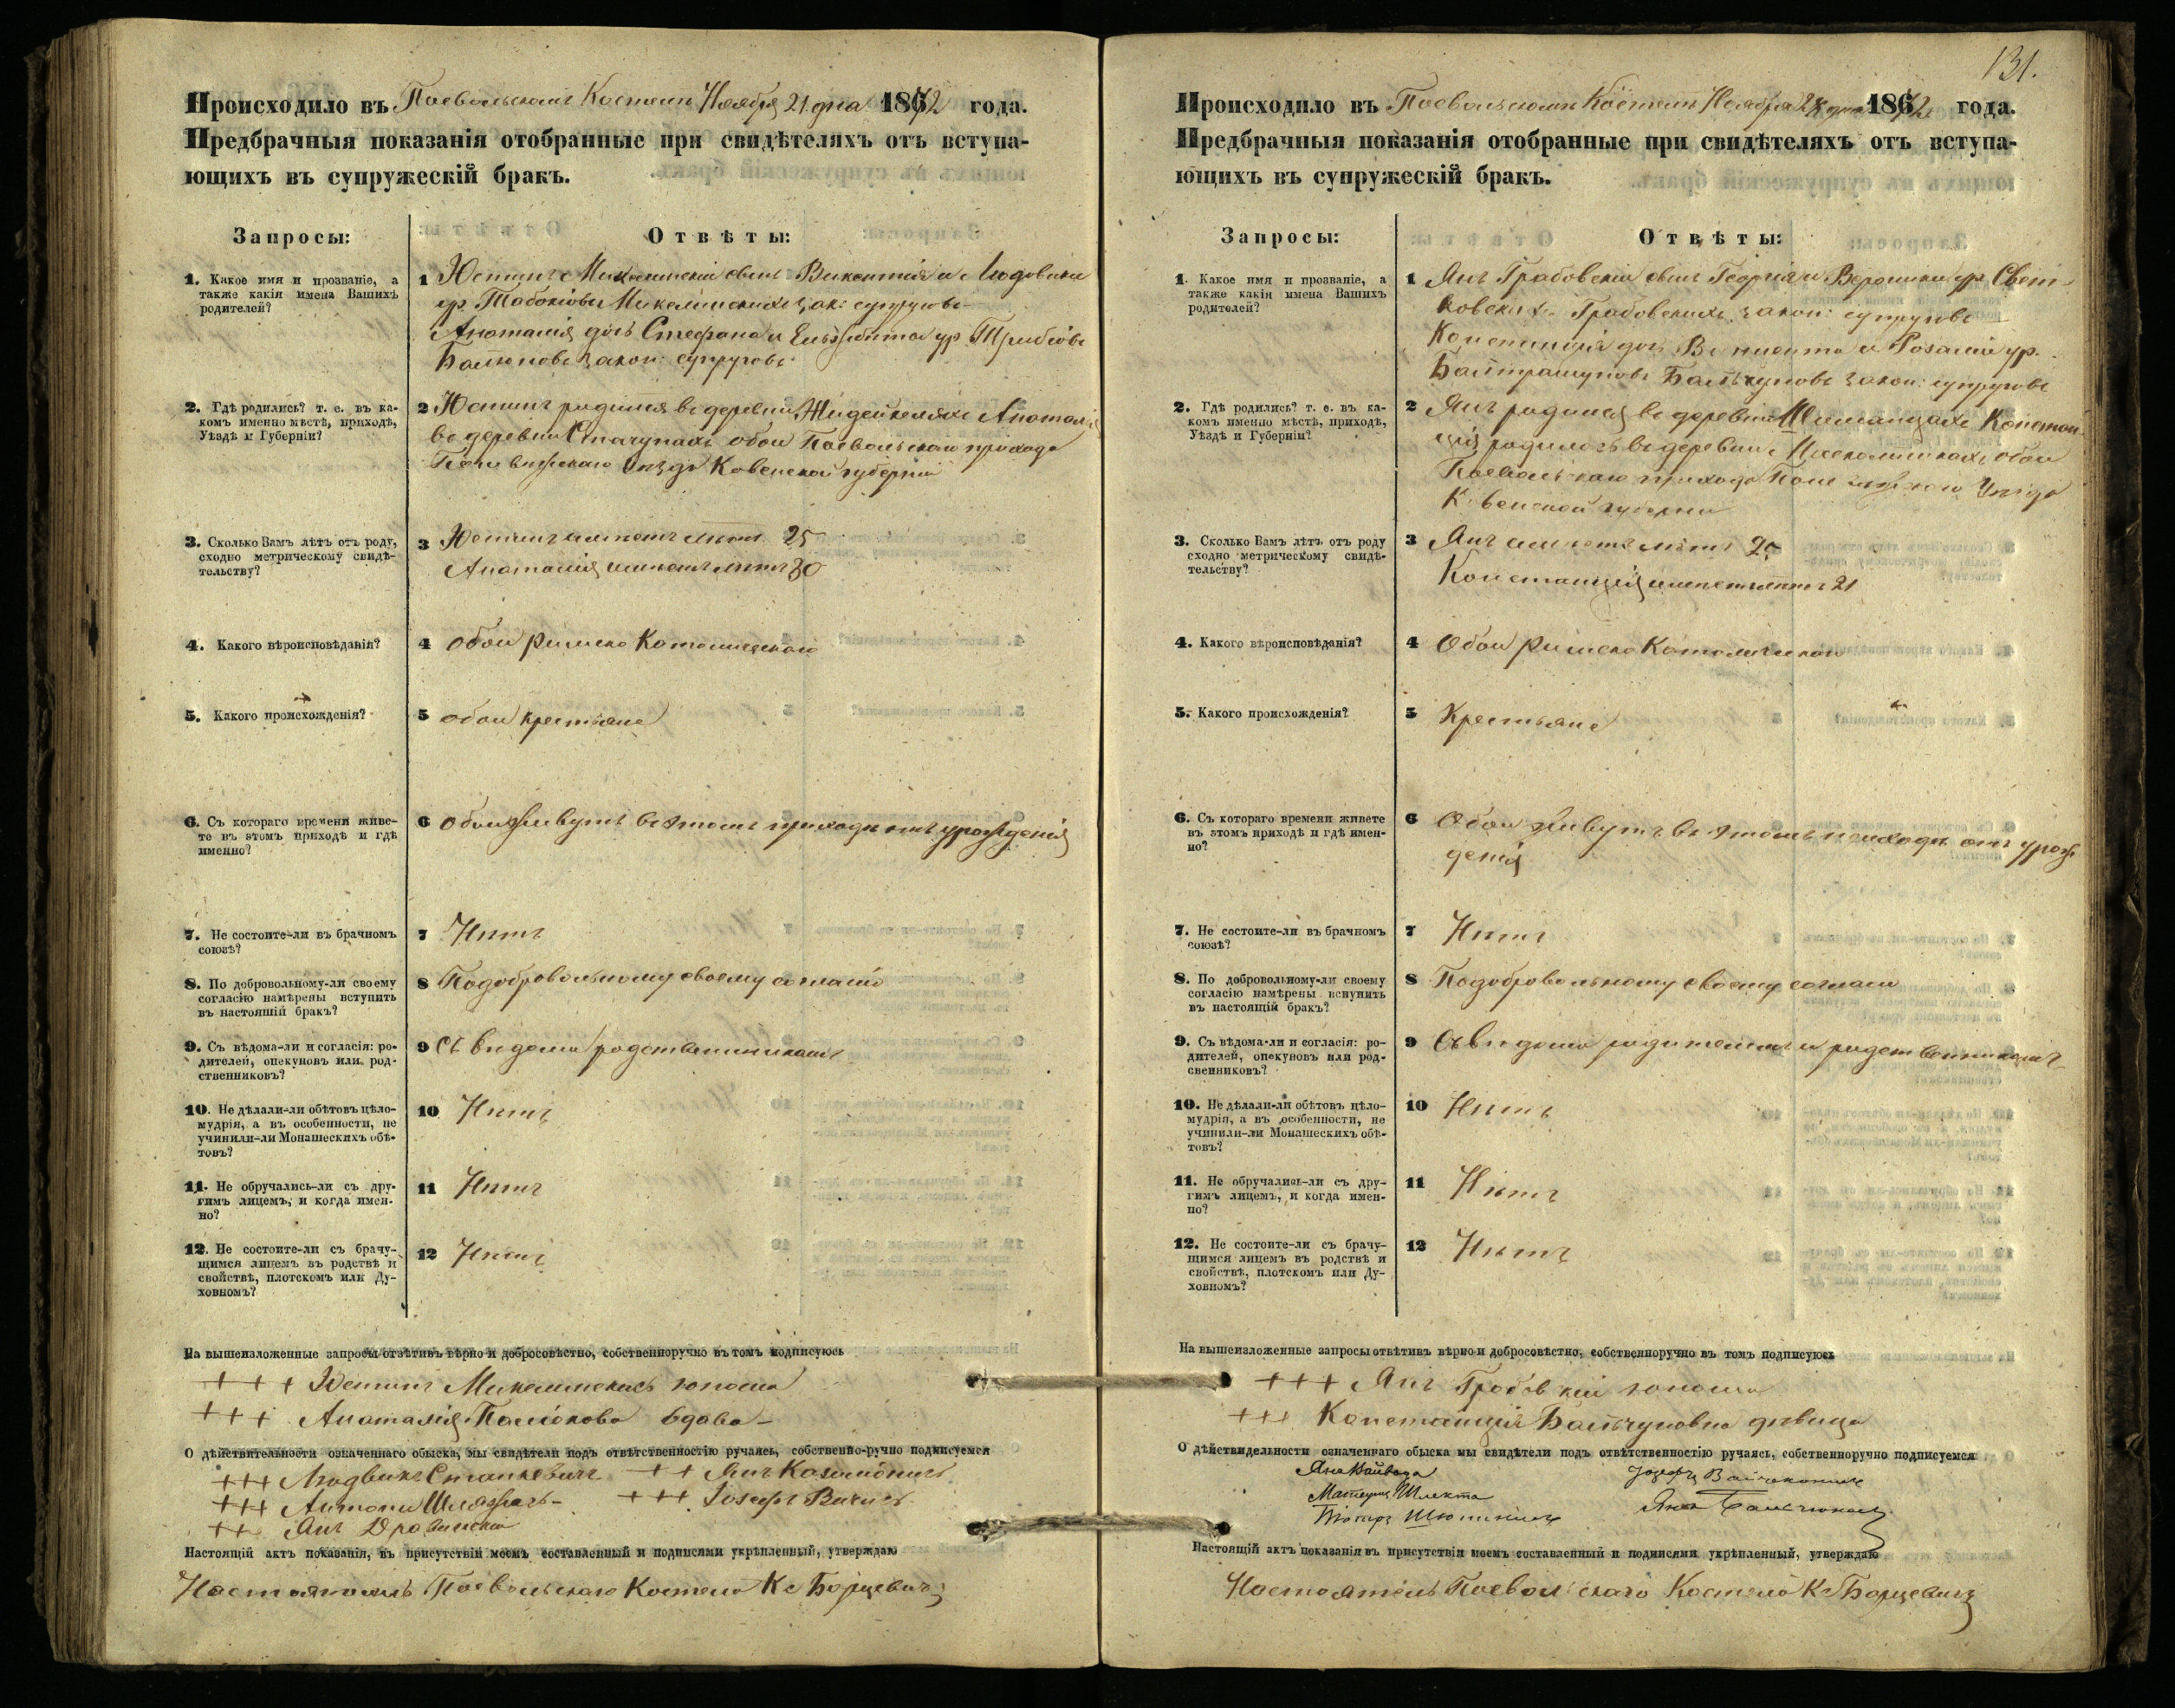 Происходило въ Поевольскомъ Костелѣ Ноября 21 дня 1872 года.
Предбрачныя показанія отобранные при свидѣтеляхъ отъ вступа-
ющихъ въ супружескій бракъ.
Запросы:
Отвѣты:
1. Какое имя и прозваніе, а
также какія имена Вашихъ
родителей?
1 Юстинъ сынъ Викентія и Людовики
ур. закон: супруговъ
Анаталія дочь Стефана и ур.
закон: супруговъ
2. Гдѣ родились? т. е. въ ка-
комъ именно мѣстѣ, приходѣ,
Уѣздѣ и Губерніи?
2 Юстинъ родился въ деревни Анаталія
въ деревни обои Поевольскаго прихода
Уѣзда Ковенской губерніи
3. Сколько Вамъ лѣтъ отъ роду,
сходно метрическому свидѣ-
тельству?
3 Юстинъ имѣетъ лѣтъ 25
Анаталія имѣетъ лѣтъ 30
4. Какого вѣроисповѣданія?
4 обои римско Католическаго
5. Какого происхожденія?
5 обои крестьяне
6. Съ котораго времени живе-
те въ этомъ приходѣ и гдѣ
именно?
6 обои живутъ въ этомъ приходѣ отъ урожденія
7. Не состоите-ли въ брачномъ
союзѣ?
7 Нѣтъ
8. По добровольному-ли своему
согласію намѣрены вступить
въ настоящій бракъ?
8 Подобровольному своему согласію
9. Съ вѣдома-ли и согласія: ро-
дителей, опекуновъ или род-
ственниковъ?
9 Съ вѣдома родственниковъ
10. Не дѣлали-ли обѣтовъ цѣло-
мудрія, а въ особенности, не
учинили-ли Монашескихъ обѣ-
товъ?
10 Нѣтъ
11. Не обручались-ли съ дру-
гимъ лицемъ, и когда имен-
но?
11 Нѣтъ
12. Не состоите-ли съ брачу-
щимся лицемъ въ родствѣ и
свойствѣ, плотскомъ или Ду-
ховномъ?
12 Нѣтъ
На вышеизложенные запросы отвѣтивъ вѣрно и добросовѣстно, собственноручно въ томъ подписуюсь
+++ Юстинъ юноша
+++ Анаталія вдова
О дѣйствительности означеннаго обыска, мы свидѣтели подъ отвѣтственностію ручаясь, собственно-ручно подписуемся
+++ Людвикъ Станкевичъ ++ Янъ
+++ Антони +++ Іосефъ
++ Янъ
Настоящій актъ показанія, въ присутствіи моемъ составленный и подписями укрѣпленный, утверждаю
Настоятель Поевольскаго Костела Кс Борцевичъ
131.
Происходило въ Поевольскомъ Костелѣ Ноября дня 1872 года.
Предбрачныя показанія отобранные при свидѣтеляхъ отъ вступа-
ющихъ въ супружескій бракъ.
Запросы:
Отвѣты:
1. Какое имя и прозваніе, а
также какія имена Вашихъ
родителей?
1 Янъ Грабовскій сынъ Георгія и Вероники ур.
Грабовскихъ закон: супруговъ
Констанція дочь и Розаліи ур.
закон: супруговъ
2. Гдѣ родились? т. е. въ ка-
комъ именно мѣстѣ, приходѣ,
Уѣздѣ и Губерніи?
2 Янъ родился въ деревни Констан-
ція родилась въ деревни обои
Поевольскаго прихода Уѣзда
Ковенской губерніи
3. Сколько Вамъ лѣтъ отъ роду
сходно метрическому свидѣ-
тельству?
3 Янъ имѣетъ лѣтъ
Констанція имѣетъ лѣтъ 21
4. Какого вѣроисповѣданія?
4 Обои римско Католическаго
5. Какого происхожденія?
5 Крестьяне
6. Съ котораго времени живете
въ этомъ приходѣ и гдѣ имен-
но?
6 Обои живутъ въ этомъ приходѣ отъ урож
денія
7. Не состоите-ли въ брачномъ
союзѣ?
7 Нѣтъ
8. По добровольному-ли своему
согласію намѣрены вспунить
въ настоящій бракъ?
8 Подобровольному своему согласію
9. Съ вѣдома-ли и согласія: ро-
дителей, опекуновъ или род-
свенниковъ?
9 Съ вѣдома родителей и родственниковъ
10. Не дѣлали-ли обѣтовъ цѣло-
мудрія, а въ особенности, не
учинили-ли Монашескихъ обѣ-
товъ?
10 Нѣтъ
11. Не обручались-ли съ дру-
гимъ лицемъ, и когда имен-
но?
11 Нѣтъ
12. Не состоите-ли съ брачу-
щимся лицемъ въ родствѣ и
свойствѣ, плотскомъ или Ду-
ховномъ?
12 Нѣтъ
На вышеизложенные запросы отвѣтивъ вѣрно и добросовѣстно, собственноручно въ томъ подписуюсь
+++ Янъ Грабовскій юноша
+++ Констанція дѣвица
О дѣйствидельности означеннаго обыска мы свидѣтели подъ отвѣтственностію ручаясь, собственноручно подписуемся
Настоящій актъ показанія въ присутствіи моемъ составленный и подписями укрѣпленный, утверждаю
Настоятель Поевольскаго Костела Кс Борцевичъ